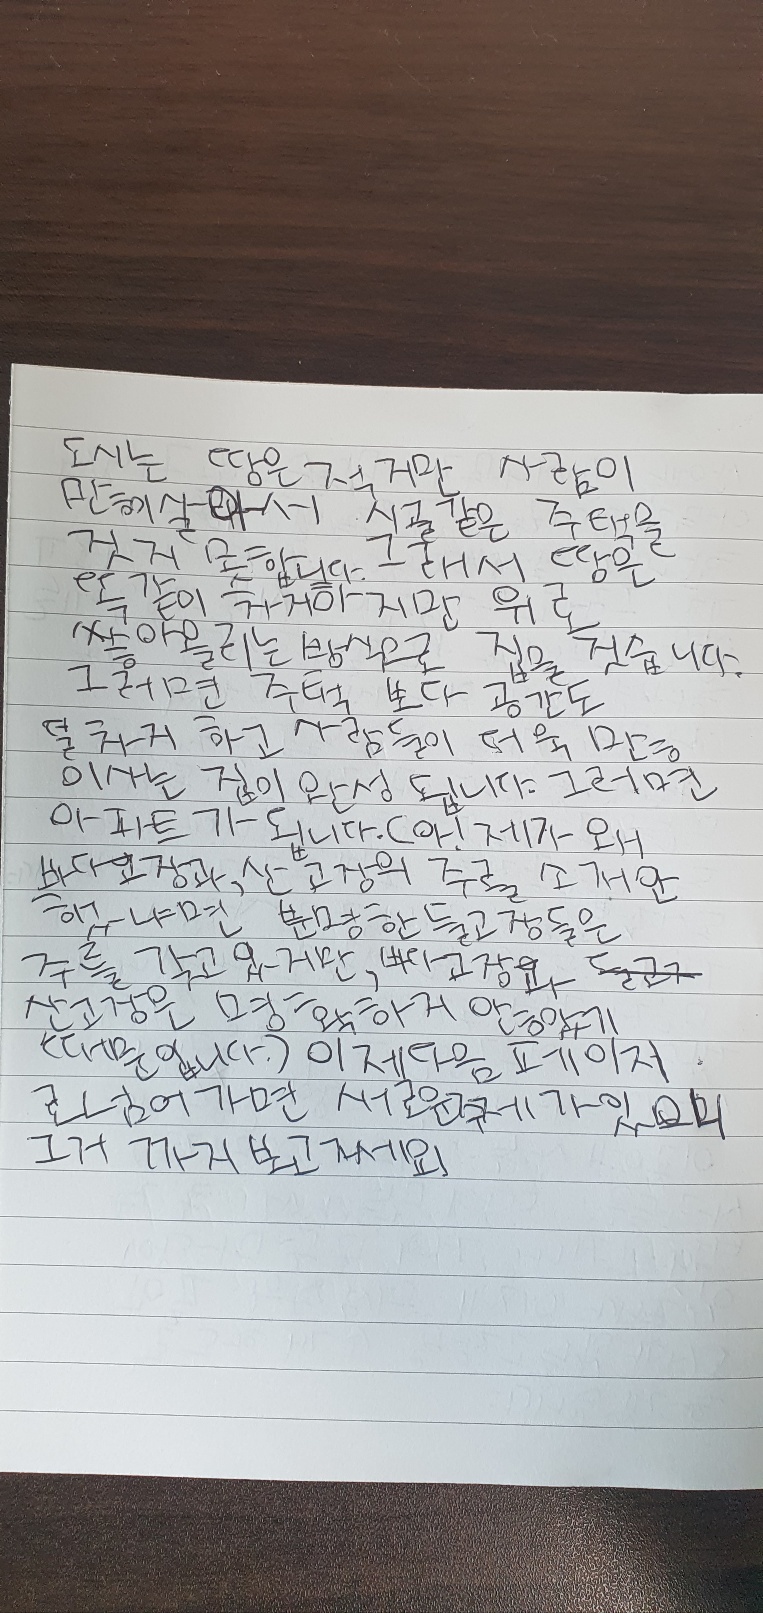 도시는 땅은 적지만 사람이
만히 살아서 시골같은 주택을
짓지 못합니다. 그래서 땅은
똑같이 차지하지만 위로
쌓아올리는 방식으로 집을 짓습니다.
그러면 주택 보다 공간도
덜 차지 하고 사람들이 더욱 만능
이사는 집이 완성 됩니다. 그러면
아파트가 됩니다.(아! 제가 왜
바다고장과, 산 고장의 주를 소개안
했냐면 분명한 들고장들은
주를 갖고 있지만, 바다고장과
산고장은 명확하지 안
때문입니다.) 이제다음 페이지
로 넘어가면 새로운주제가있으니
그거 까지 보고가세요!